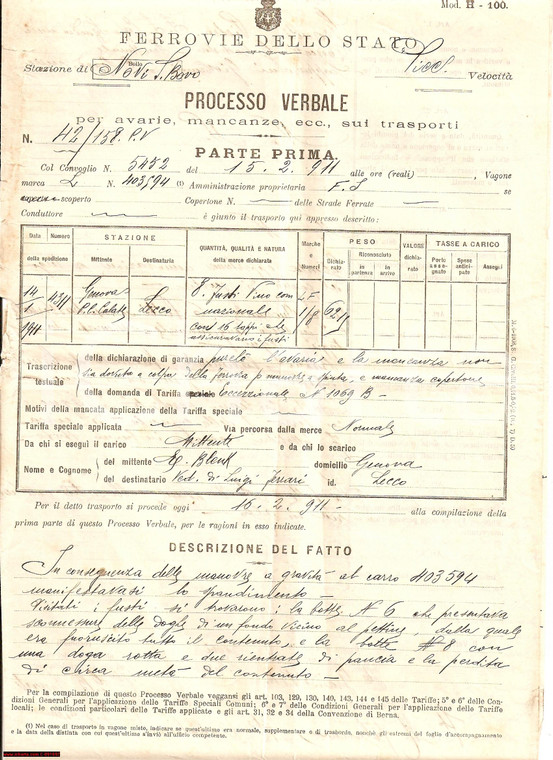 Mod. H - 100.
FERROVIE DELLO STATO
Stazione di Novi S. Bovo Picc. Velocità
PROCESSO VERBALE
per avarie, mancanze, ecc., sui trasporti
N. 42/158. P.V
PARTE PRIMA.
Col Convoglio N. 5452 del 15. 2. 911 alle ore (reali) , Vagone
marca L N. 403594 (1) Amministrazione proprietaria F. S se
scoperto Copertone N. delle Strade Ferrate
Conduttore è giunto il trasporto qui appresso descritto:
Data Numero della spedizione
STAZIONE Mittente Destinataria
QUANTITÀ, QUALITÀ E NATURA della merce dichiarata
Marche e Numeri
PESO Dichiarato Riconosciuto in partenza in arrivo
VALORE dichiarato
TASSE A CARICO Porto assegnato Spese anticipate Assegni
14 Genova 8 fusti Vino com L F
1 431 P. C. Lecco nazionale 1/8
911 con 16 tappi che
assicuravano i fusti
Trascrizione testuale
della dichiarazione di garanzia purchè l'avaria e la mancanza non
sia dovuta a colpa della ferrovia p manovre a spinta, e mancanza copertone
della domanda di Tariffa Eccezionale N 1069 B -
Motivi della mancata applicazione della Tariffa speciale
Tariffa speciale applicata Via percorsa dalla merce Normale
Da chi si eseguì il carico Mittente e da chi lo scarico
Nome e Cognome
del mittente E. Blenk domicilio Genova
del destinatario Ved. di Luigi Ferrari id. Lecco
Per il detto trasporto si procede oggi 15. 2. 911 - alla compilazione della
prima parte di questo Processo Verbale, per le ragioni in esso indicate.
DESCRIZIONE DEL FATTO
In conseguenza delle manovre a gravità al carro 403594
manifestavasi lo spandimento -
Visitati i fusti si trovarono: la botte N 6 che presentava
sconnessure delle doghe di un fondo vicino al pettine, dalla quale
era fuoruscito tutto il contenuto, e la botte # 8 con
una doga rotta e due rientrate di pancia e la perdita
di circa metà del contenuto -
Per la compilazione di questo Processo Verbale veggansi gli art. 103, 129, 130, 140, 143, 144 e 145 delle Tariffe; 5° e 6° delle Condizioni Generali per l'applicazione delle Tariffe Speciali Comuni; 6° e 7° delle Condizioni Generali per l'applicazione delle Tariffe
locali; le condizioni particolari delle Tariffe applicate e gli art. 31, 32 e 34 della Convenzione di Berna.
(1) Nel caso di trasporto in vagone misto, indicare se quest'ultimo era normale, supplementare o di trasbordo, nonchè gli estremi del foglio d'accompagnamento
e la data della distinta con cui quest'ultimo s'inviò all'ufficio competente.